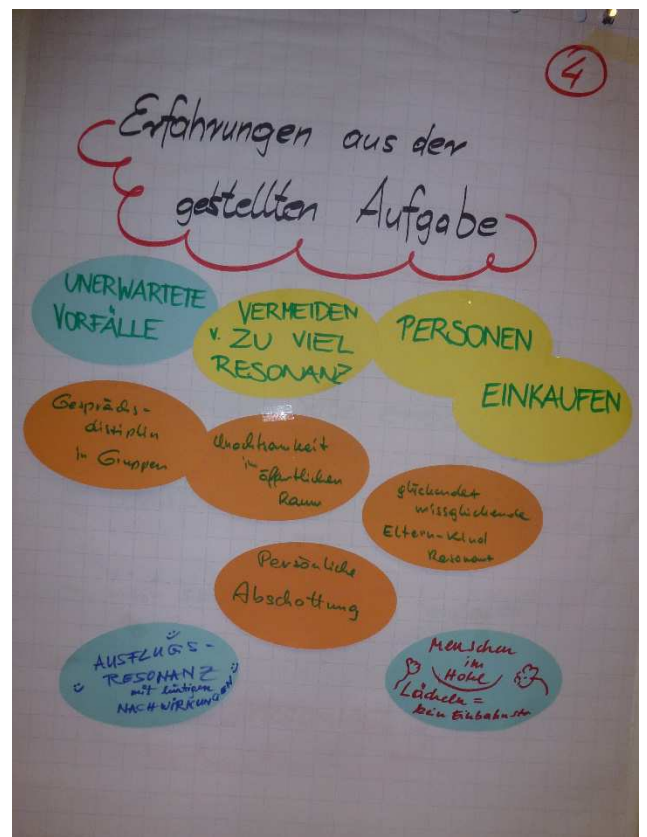 4
Erfahrungen aus der
gestellten Aufgabe
UNERWARTETE
VORFÄLLE
VERMEIDEN
v. ZU VIEL
RESONANZ
PERSONEN
EINKAUFEN
Gesprächs-
disziplin
in Gruppen
Unachtsamkeit
im öffentlichen
Raum
missglückende
Eltern-Kind
Persönliche
Abschottung
AUSFLUGS-
RESONANZ
mit
NACHWIRKUNGEN
Menschen
im
Lächeln =
kein Einbahnstr